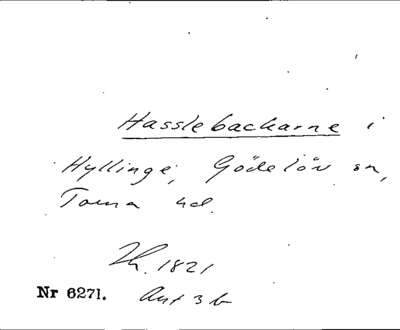 Hasslebackarne i
Hyllinge, Gödelöv sn,
Torna hd.
1821
Nr 6271. Avs 3 b